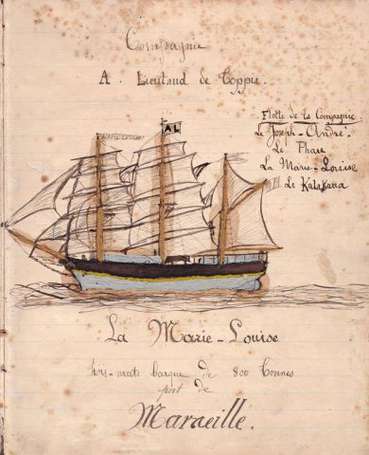 Compagnie
A. Lieutaud de Toppie.
AL
Flotte de la Compagnie
Le Joseph-André.
Le Phare
La Marie-Louise
Le Kalakaua
La Marie-Louise
trois-mâts barque de 800 tonnes
port de
Marseille.